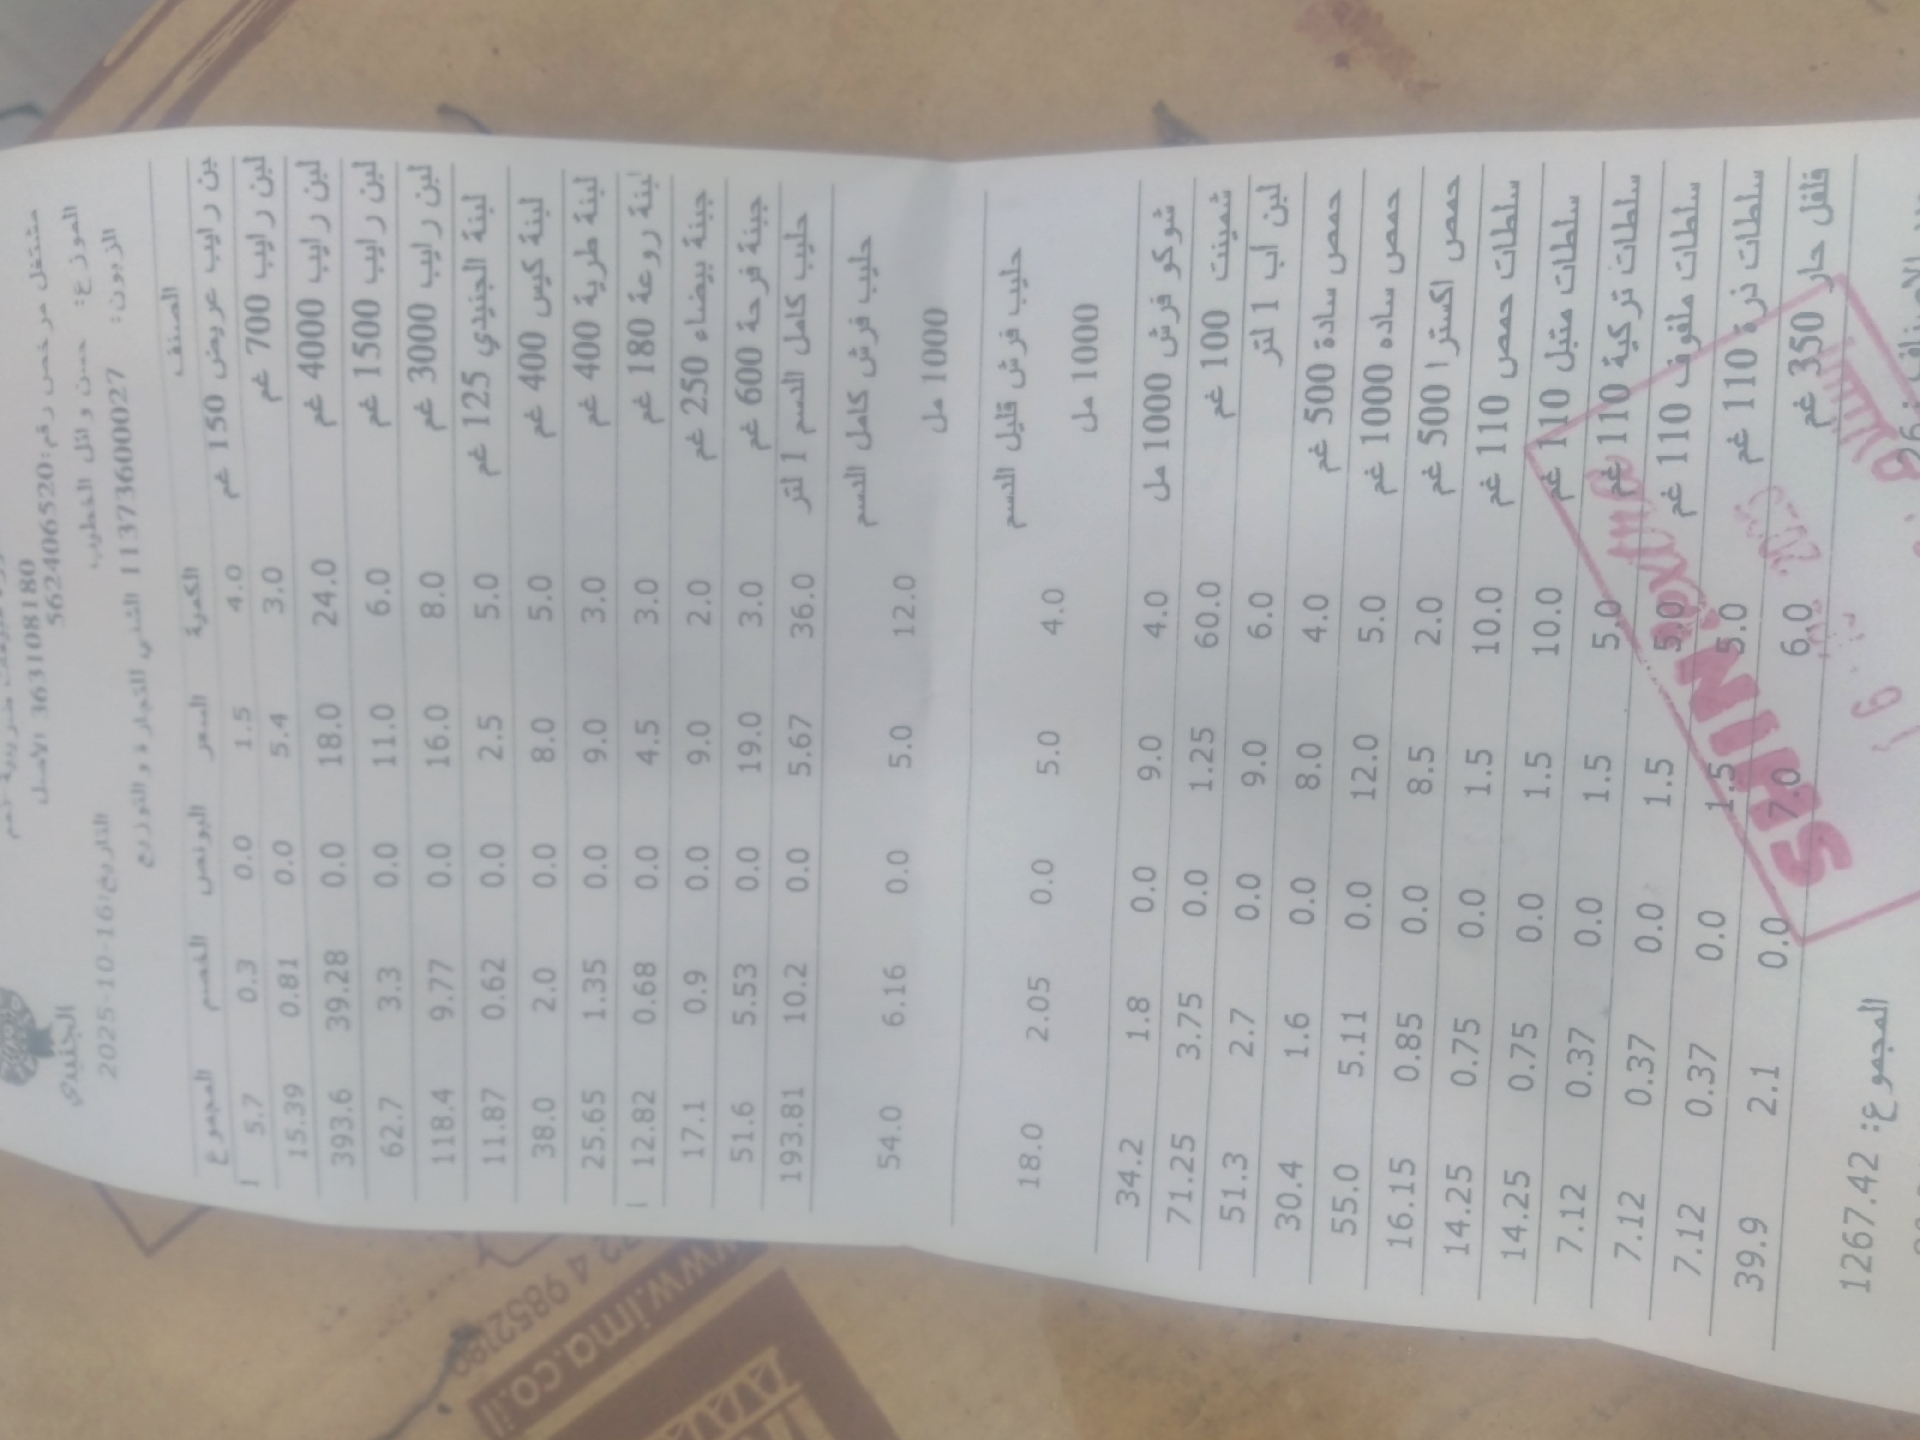 الجنيدي
الأصل 363108180
مشتغل مرخص رقم: 562406520
الموزع: حسن وائل الخطيب
التاريخ: 2025-10-16
الزبون: 11373600027 الشني التجارة والتوزيع
الصنف الكمية السعر البونص الخصم المجموع
لبن رايب عريض 150 غم 4.0 1.5 0.0 0.3 5.7
لبن رايب 700 غم 3.0 5.4 0.0 0.81 15.39
لبن رايب 4000 غم 24.0 18.0 0.0 39.28 393.6
لبن رايب 1500 غم 6.0 11.0 0.0 3.3 62.7
لبن رايب 3000 غم 8.0 16.0 0.0 9.77 118.4
لبنة الجنيدي 125 غم 5.0 2.5 0.0 0.62 11.87
لبنة كيس 400 غم 5.0 8.0 0.0 2.0 38.0
لبنة طرية 400 غم 3.0 9.0 0.0 1.35 25.65
لبنة روعة 180 غم 3.0 4.5 0.0 0.68 12.82
جبنة بيضاء 250 غم 2.0 9.0 0.0 0.9 17.1
جبنة فرحة 600 غم 3.0 19.0 0.0 5.53 51.6
حليب كامل الدسم 1 لتر 36.0 5.67 0.0 10.2 193.81
حليب فرش كامل الدسم 12.0 5.0 0.0 6.16 54.0
1000 مل
حليب فرش قليل الدسم 4.0 5.0 0.0 2.05 18.0
1000 مل
شوكو فرش 1000 مل 4.0 9.0 0.0 1.8 34.2
شمينت 100 غم 60.0 1.25 0.0 3.75 71.25
لبن اب 1 لتر 6.0 9.0 0.0 2.7 51.3
حمص سادة 500 غم 4.0 8.0 0.0 1.6 30.4
حمص ساده 1000 غم 5.0 12.0 0.0 5.11 55.0
حمص اكسترا 500 غم 2.0 8.5 0.0 0.85 16.15
سلطات حمص 110 غم 10.0 1.5 0.0 0.75 14.25
سلطات متبل 110 غم 10.0 1.5 0.0 0.75 14.25
سلطات تركية 110 غم 5.0 1.5 0.0 0.37 7.12
سلطات ملفوف 110 غم 5.0 1.5 0.0 0.37 7.12
سلطات ذرة 110 غم 5.0 1.5 0.0 0.37 7.12
فلفل حار 350 غم 6.0 7.0 0.0 2.1 39.9
المجموع: 1267.42
SHINY
www.ima.co.il